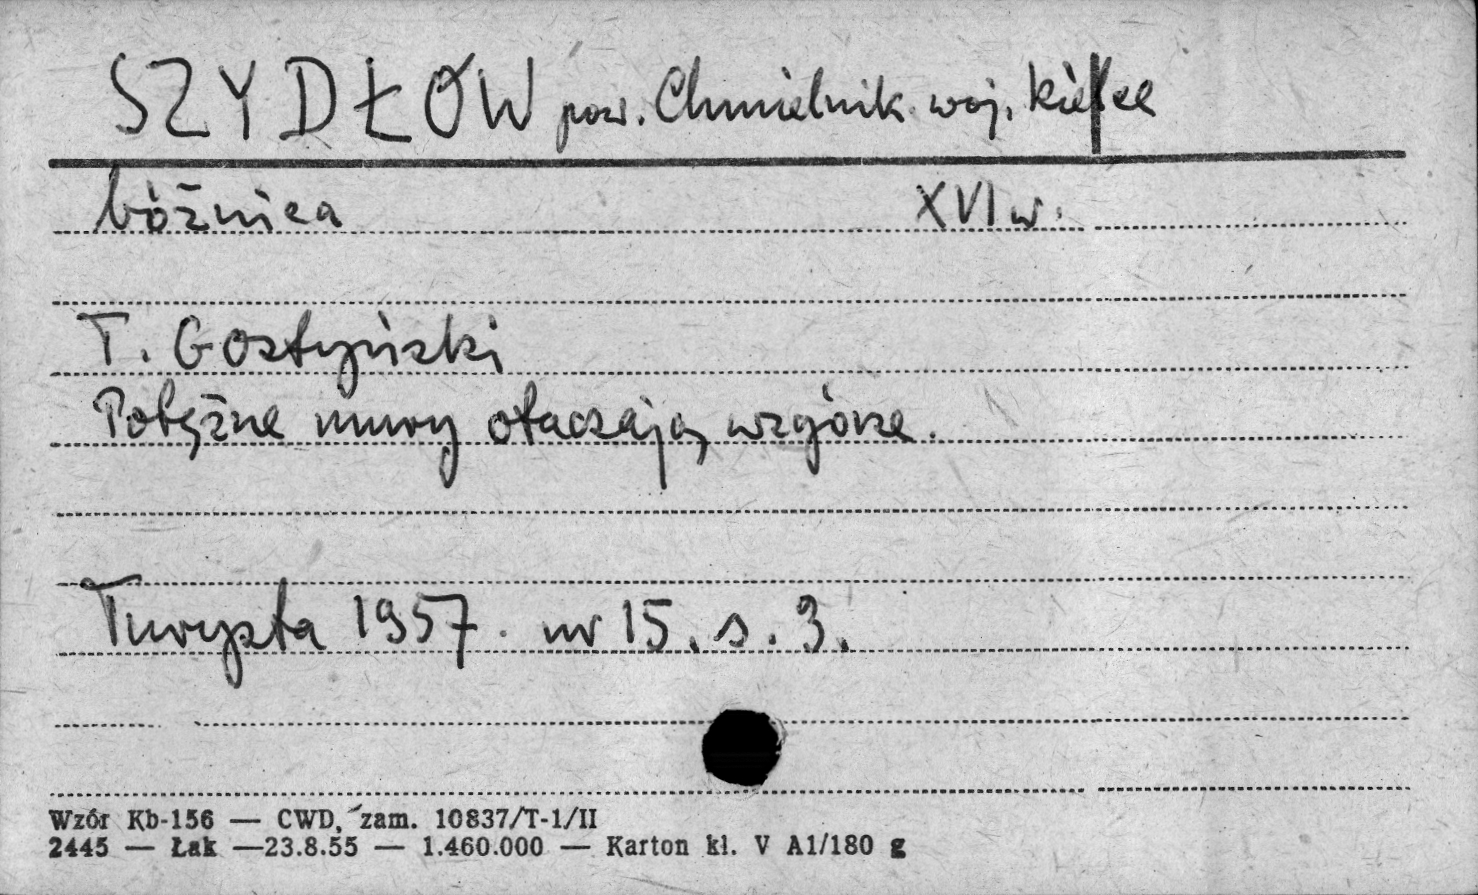 SZYDŁÓW pow. Chmielnik woj. Kielce
bóżnica XVI w.
T. Gostyński
Potężne mury otaczają wzgórze.
Turysta 1957. nr 15. s. 3.
Wzór Kb-156 — CWD, zam. 10837/T-1/II
2445 — Łak —23.8.55 — 1.460.000 — Karton kl. V A1/180 g